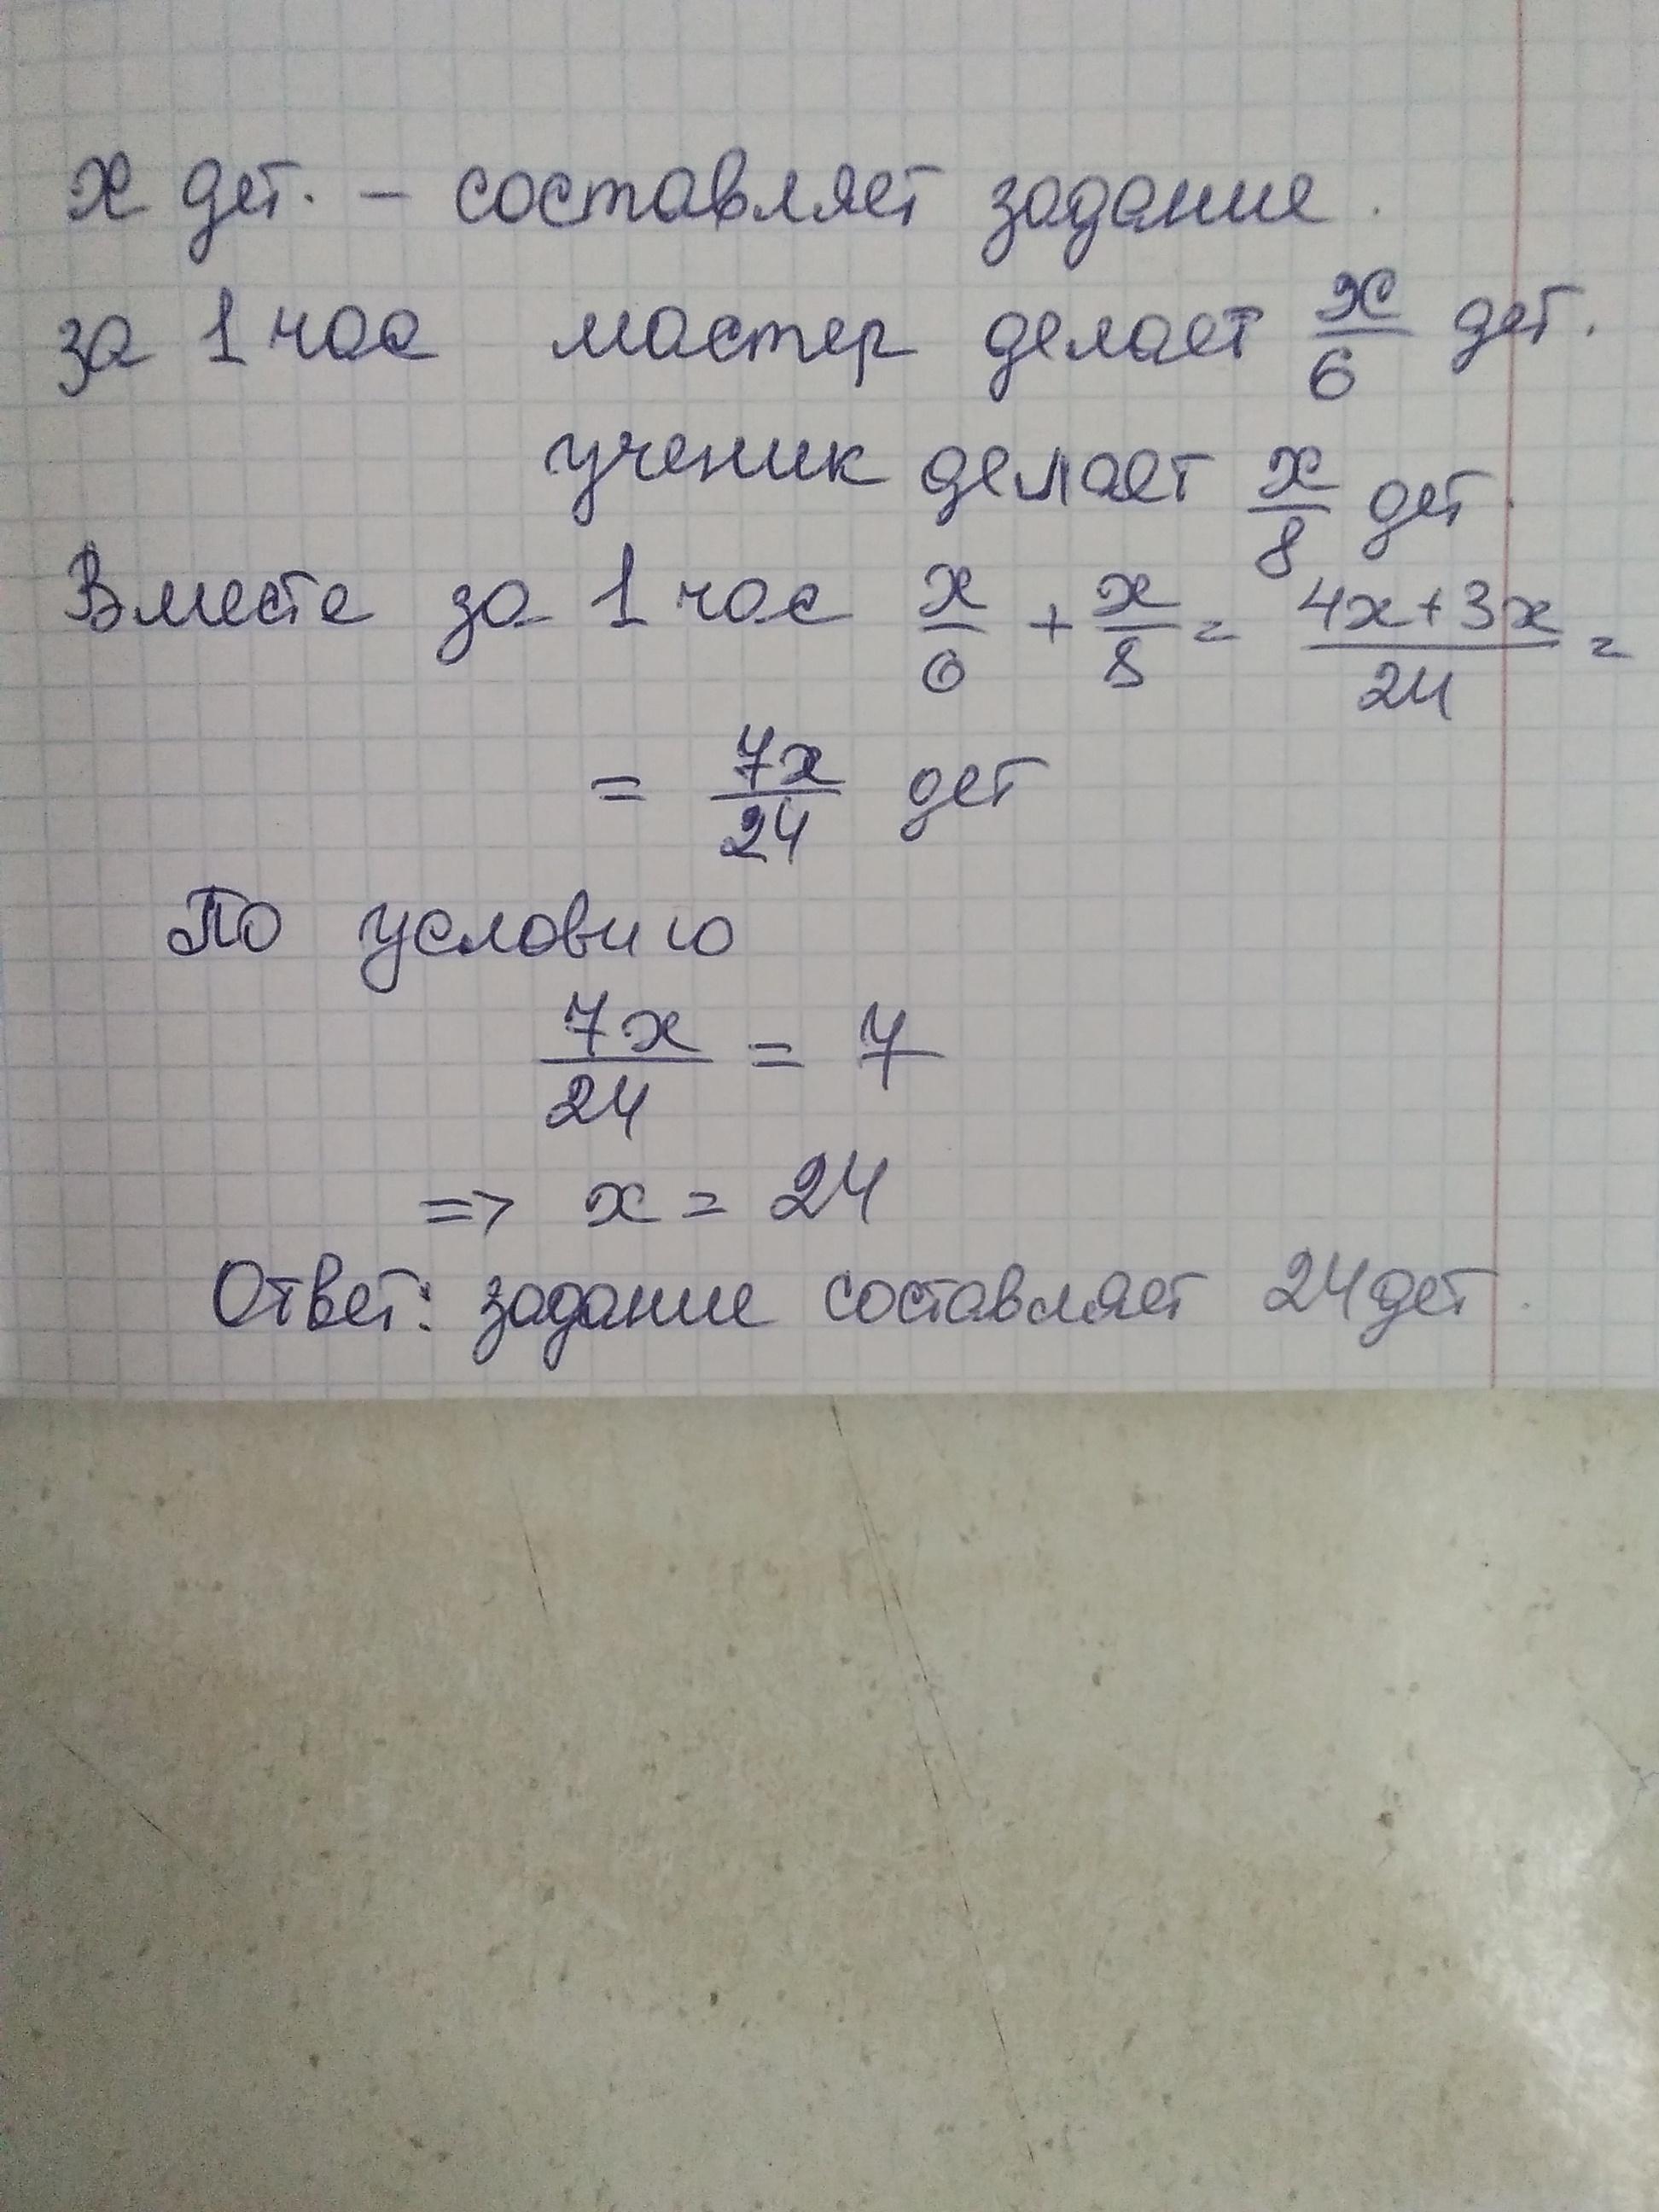 x дет. – составляет задание.
за 1 час мастер делает x/6 дет.
ученик делает x/8 дет.
Вместе за 1 час x/6 + x/8 = (4x+3x)/24 =
= 7x/24 дет
По условию
7x/24 = 7
=> x = 24
Ответ: задание составляет 24 дет.